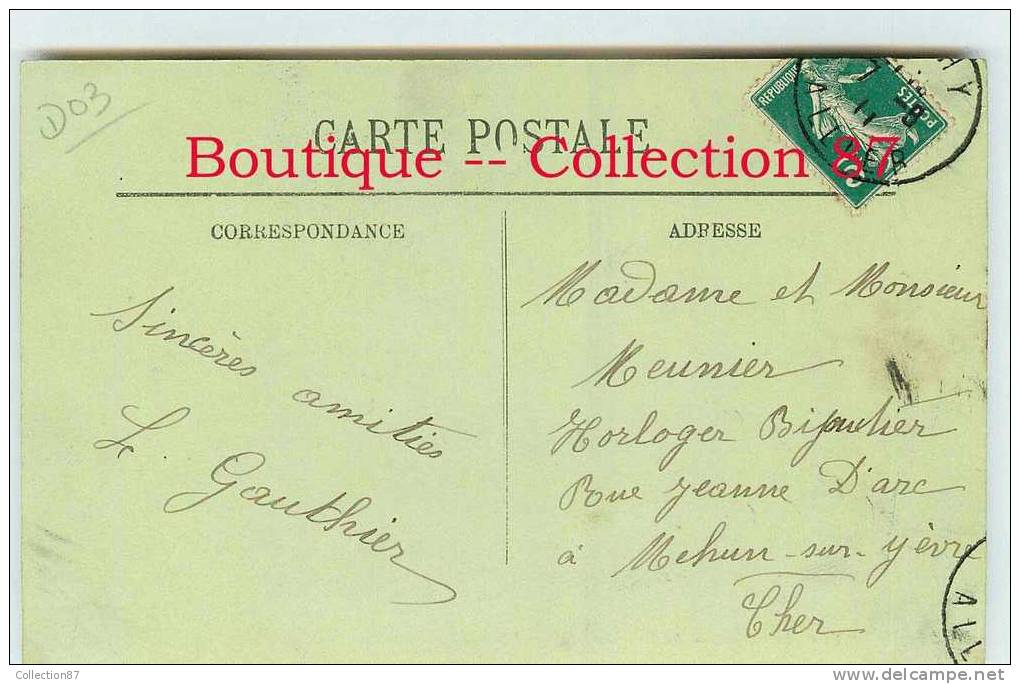 D03
CARTE POSTALE
Boutique -- Collection 87
REPUBLIQUE
POSTES
HY
7 -8
11
ALLIER
CORRESPONDANCE
ADRESSE
Sincères amitiés
L. Gauthier
Madame et Monsieur
Meunier
Horloger Bijoutier
Rue Jeanne D'arc
à Mehun-sur-Yèvre
Cher
ALL
Collection87
www.delcampe.net